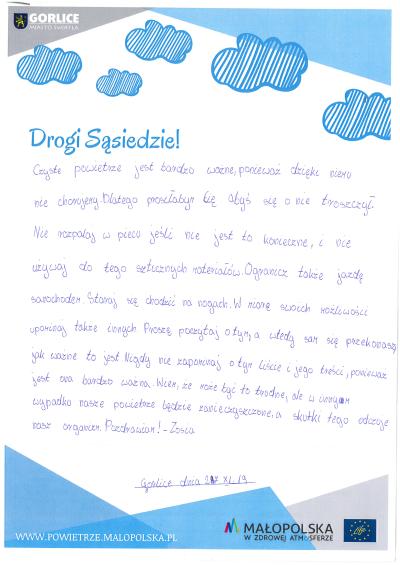 GORLICE
MIASTO ŚWIATŁA
Drogi Sąsiedzie!
Czyste powietrze jest bardzo ważne, ponieważ dzięki niemu
nie chorujemy. Dlatego prosiłabym Cię abyś się o nie troszczył.
Nie rozpalaj w piecu jeśli nie jest to konieczne, i nie
używaj do tego sztucznych materiałów. Ogranicz także jazdę
samochodem. Staraj się chodzić na nogach. W miarę swoich możliwości
upominaj także innych. Proszę poczytaj o tym, a wtedy sam się przekonasz
jak ważne to jest. Nigdy nie zapominaj o tym liście i jego treści, ponieważ
jest ona bardzo ważna. Wiem, że może być to trudne, ale w innym
wypadku nasze powietrze będzie zanieczyszczone, a skutki tego odczuje
nasz organizm. Pozdrawiam! - Zosia
Gorlice dnia XI. 19
WWW.POWIETRZE.MALOPOLSKA.PL
MAŁOPOLSKA
W ZDROWEJ ATMOSFERZE
life